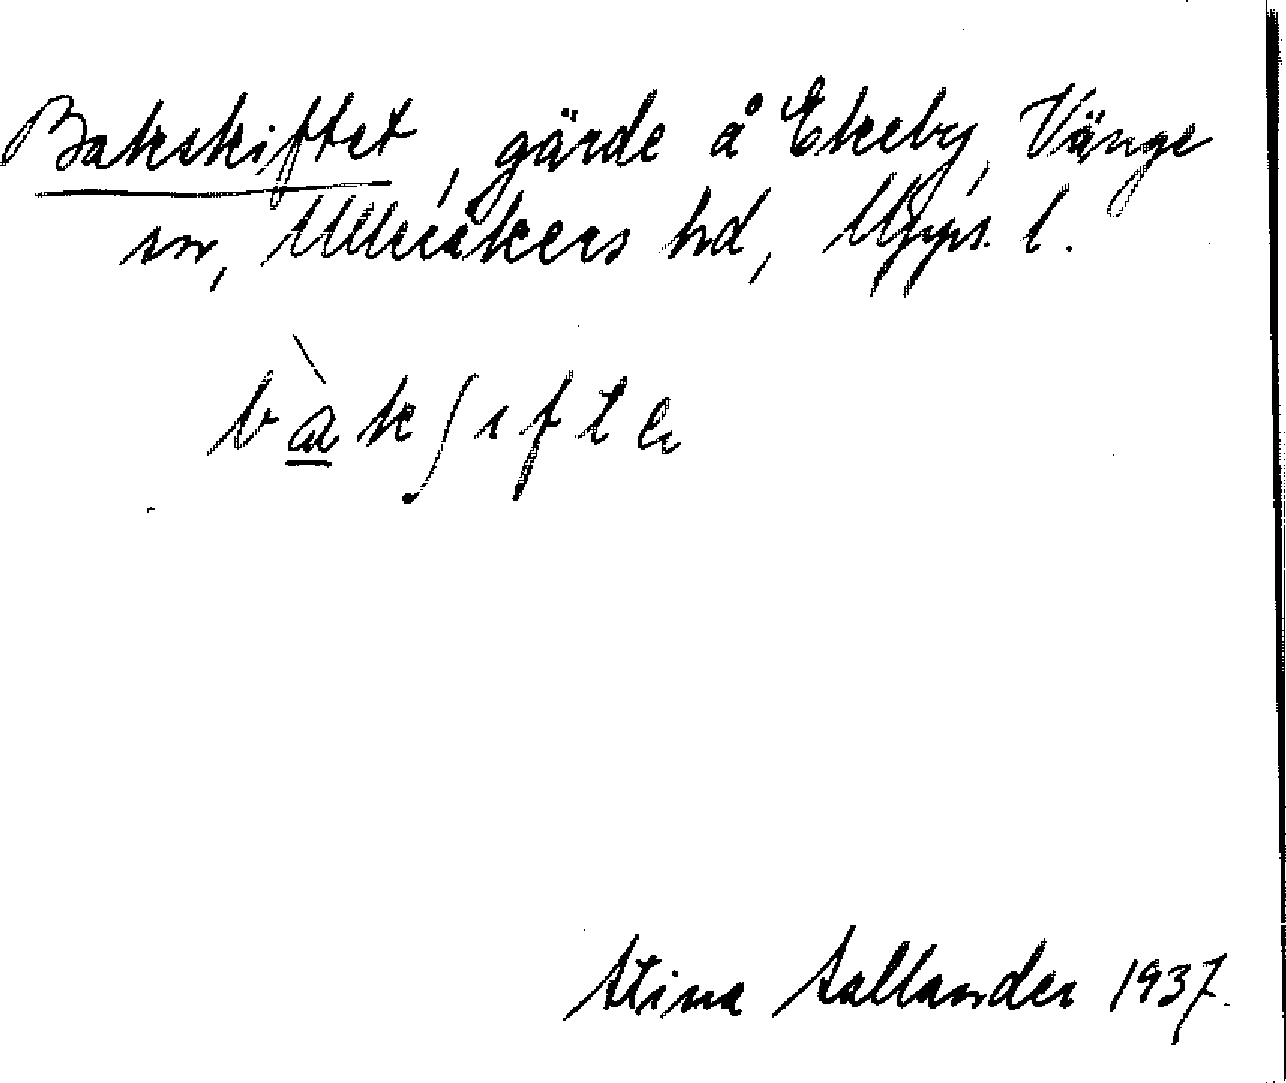 Bakskiftet, gärde å Ekeby, Vänge
sn, Ulleråkers hd, Upps. l.
bàkʃıfte
Stina Sallander 1937.